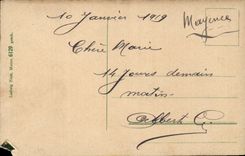 10 Janvier 1919
Mayence
Chère Marie
14 Jours demain
matin
Albert
Ludwig Feist, Mainz 6120 gesch.